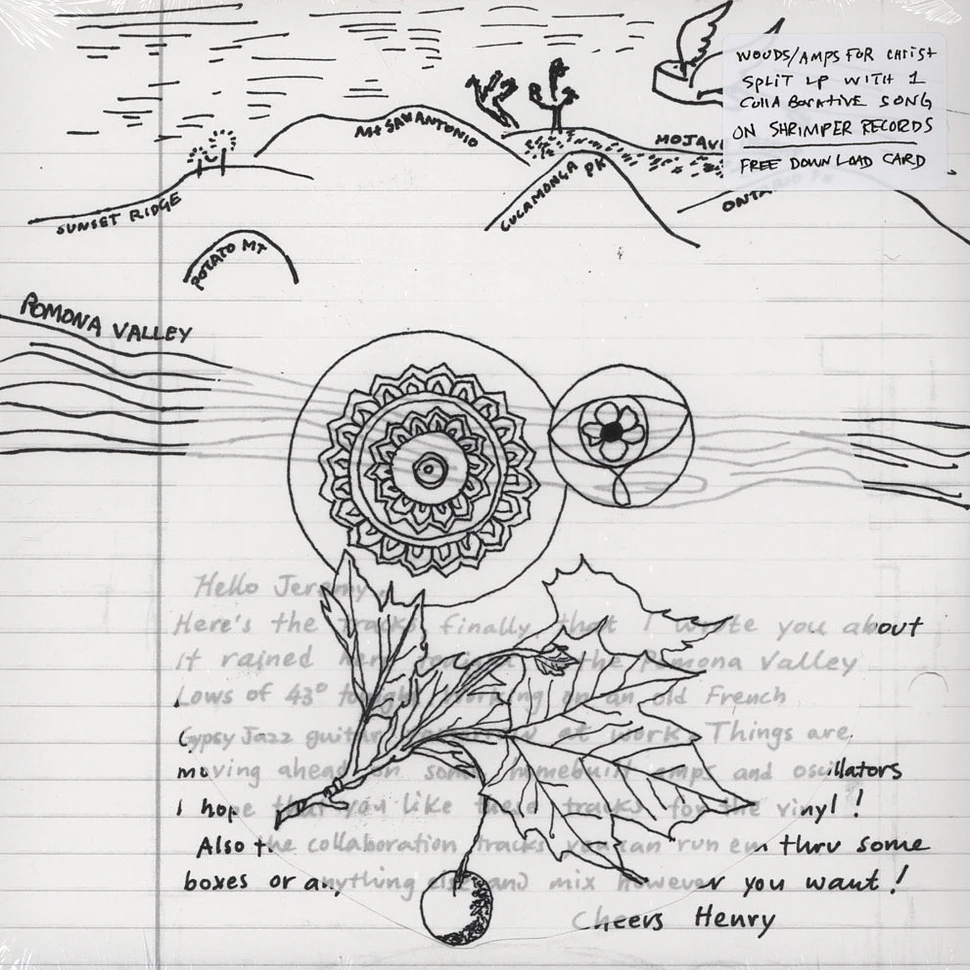 WOODS/AMPS FOR CHRIST
SPLIT LP WITH 1
COLLABORATIVE SONG
ON SHRIMPER RECORDS
FREE DOWNLOAD CARD
Mt SAN ANTONIO
MOJAV
CUCAMONGA PK
ONTARIO PK
SUNSET RIDGE
POTATO MT
POMONA VALLEY
Hello Jeremy,
Here's the tracks finally, that I wrote you about
It rained here tonight the Pomona Valley
Lows of 43° tonight working on an old French
Gypsy Jazz guitar at work. Things are
moving ahead on some homebuilt amps and oscillators
I hope that you like these tracks for the vinyl!
Also the collaboration tracks you can run em thru some
boxes or anything else and mix however you want!
Cheers Henry